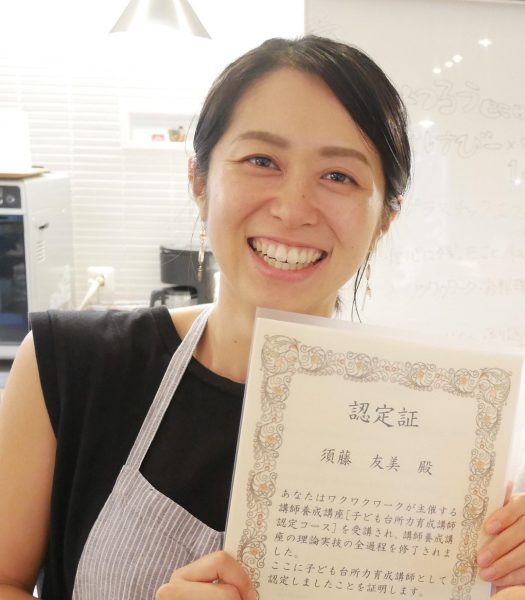 認定証
須藤 友美 殿
あなたはワクワクワークが主催する
講師養成講座[子ども台所力育成講師
認定コース]を受講され、講師養成講
座の理論実技の全過程を修了されま
した。
ここに子ども台所力育成講師として
認定しましたことを証明します。